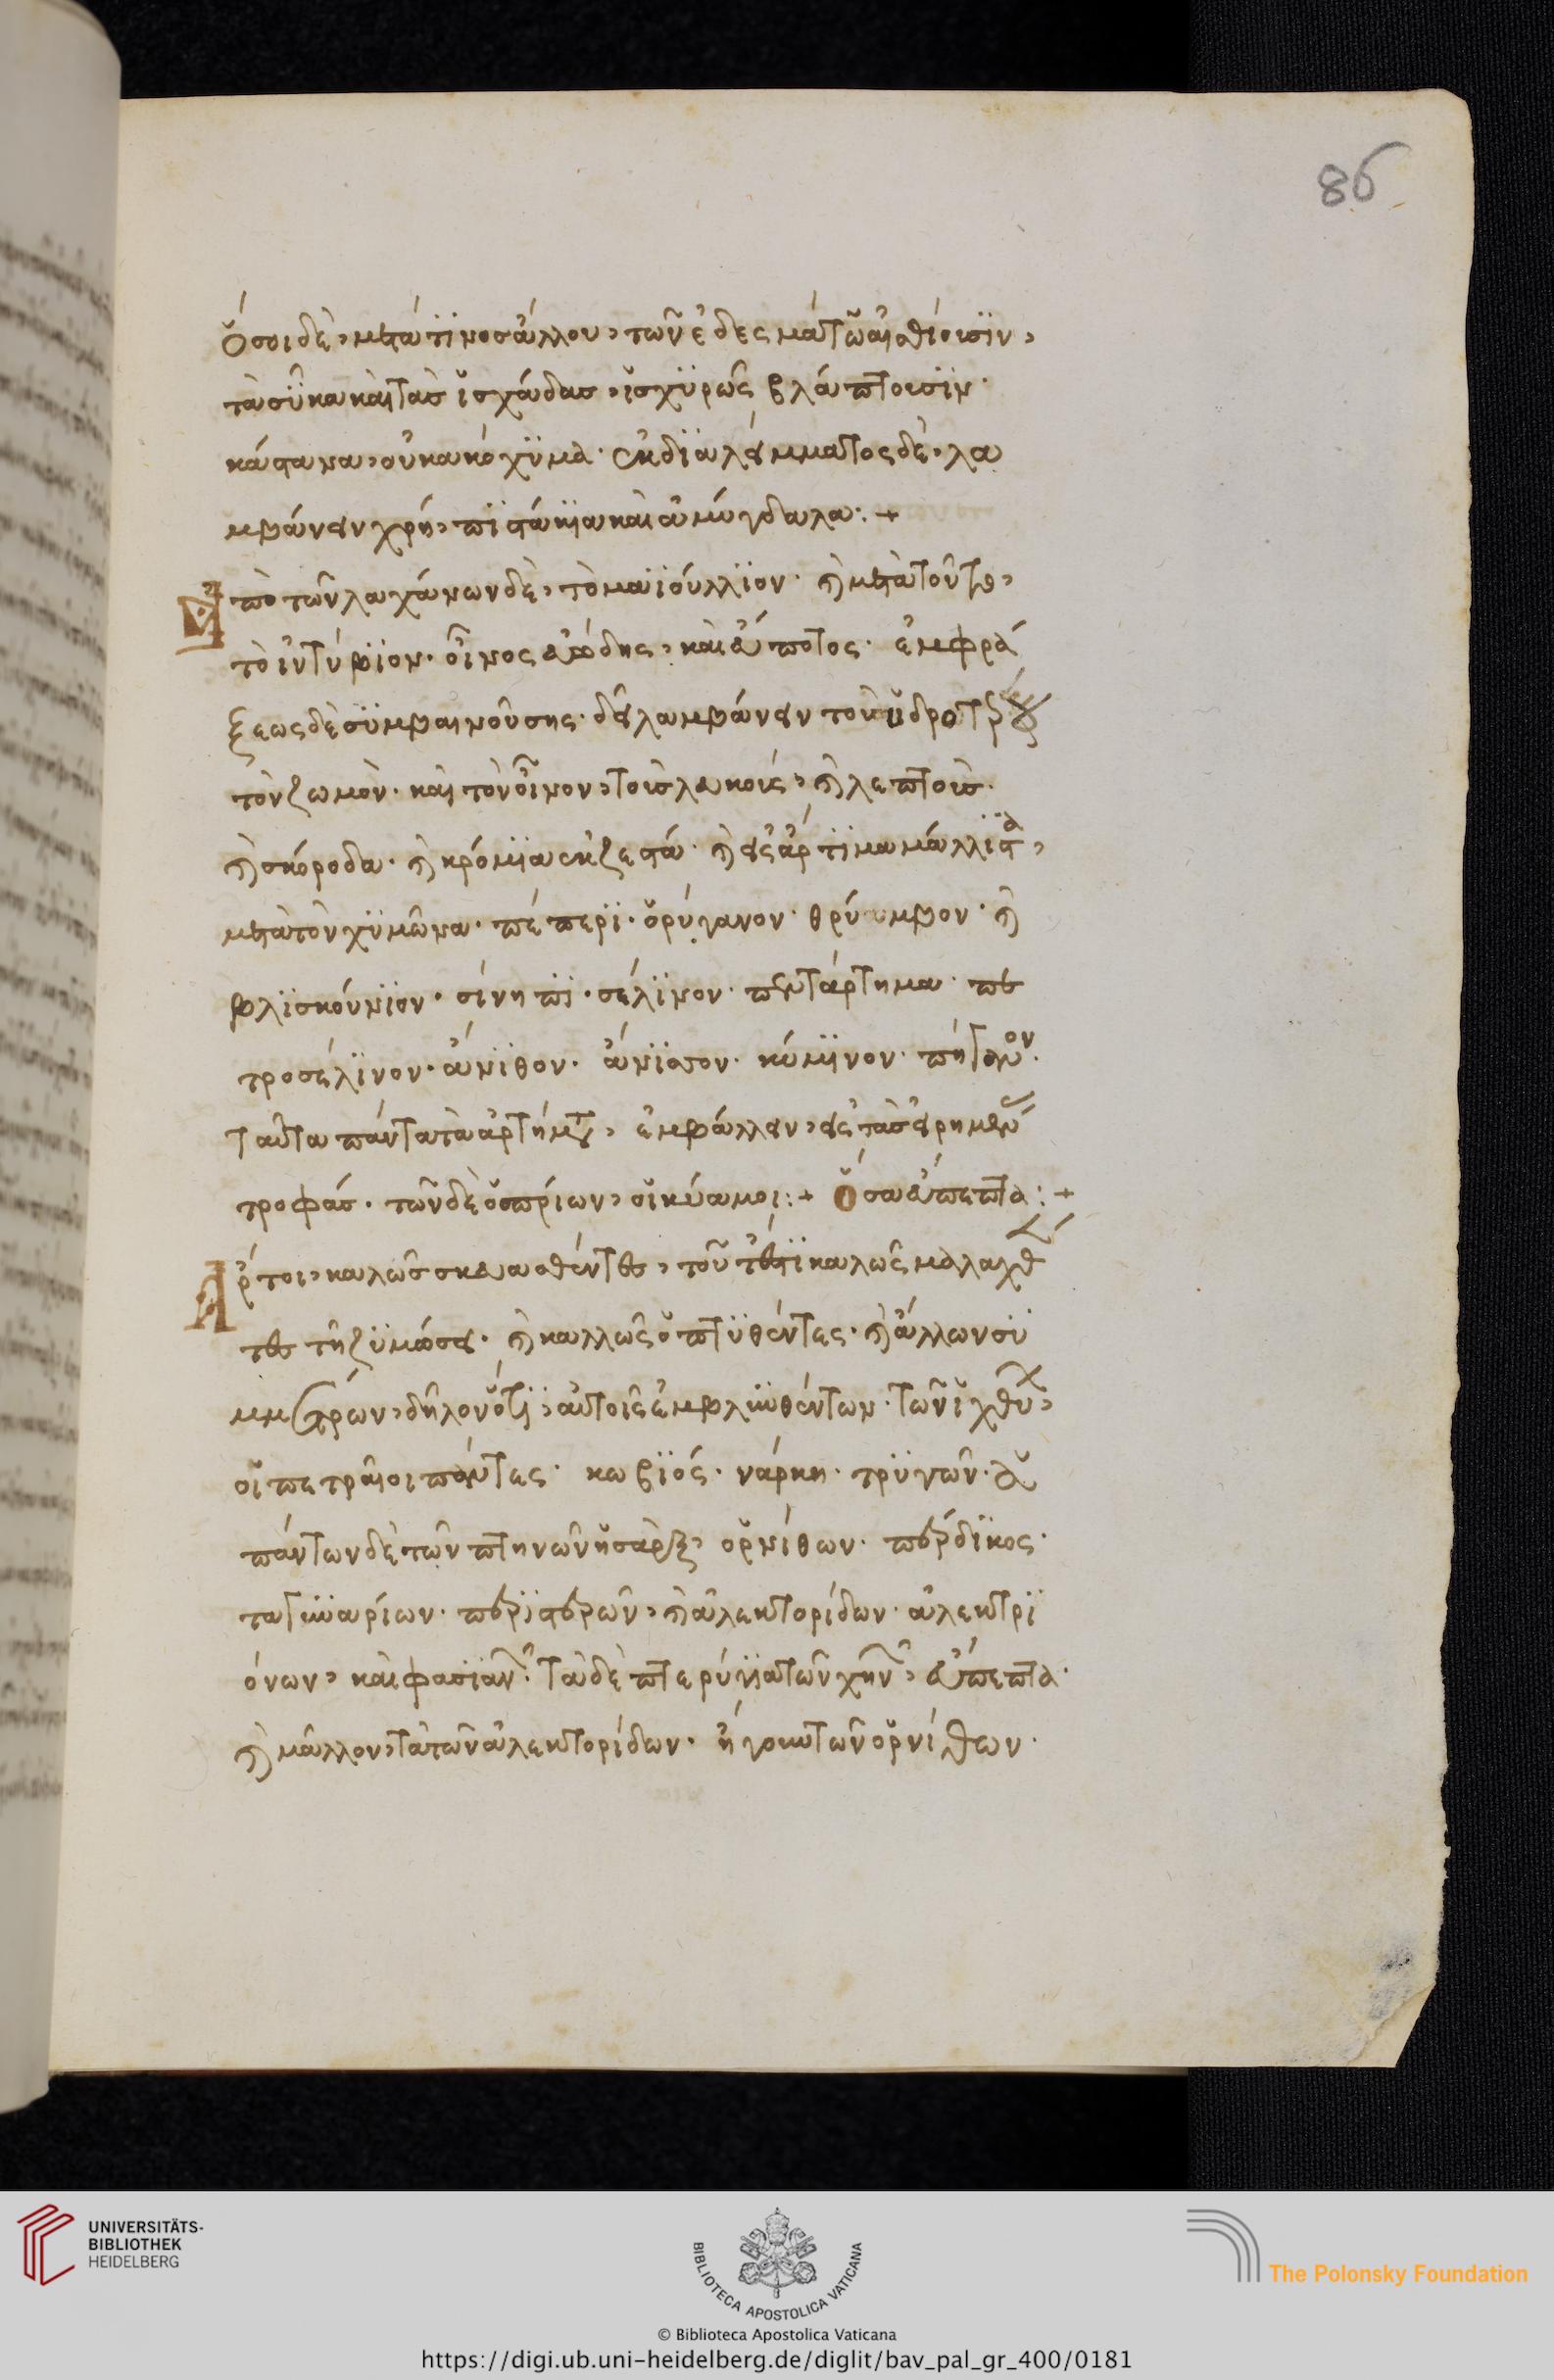 86
ὅσοι δὲ, μετά τϊνος ἄλλου, τῶν ἐδεσμάτων αἰσθίουσϊν,
τὰ σῦκα καὶ τὰς ἰσχάδας, ἰσχϋρῶς βλάπτουσϊν·
κάστανα, οὐ κακόχϋμα· ἐκ δϊαλείμματος δὲ, λα
μβάνειν χρή, πϊστάκϊα καὶ ἀμύγδαλα :+
Ἀπὸ τῶν λαχάνων δὲ, τὸ μαϊούλλϊον· καὶ μετὰ τοῦτο,
τὸ ἰντύβϊον· οἶνος εὐώδης, καὶ εὔποτος· ἐμφρά
ξεως δὲ σϋμβαινούσης· δεῖ λαμβάνειν τὸν
τὸν ζωμὸν· καὶ τὸν οἶνον, τοὺς λευκοὺς, καὶ λεπτοὺς·
καὶ σκόροδα· καὶ κρόμϊα ἐκζεστά· καὶ εἰς ἀρτϊμα μάλλιστα,
μετὰ τὸν χϋμῶνα· πέπερϊ· ὀρύγανον· θρύμβον· καὶ
βλϊσκούνϊον· σίνηπϊ· σέλϊνον· πευτάρτημα· πε
τροσέλϊνον· ἄνϊθον· ἄνϊσον· κύμϊνον· πήγανον·
ταῦτα πάντα τὰ ἀρτήματα, ἐμβάλλειν, εἰς τὰς εἰρημένας
τροφάς· τῶν δὲ ὀσπρίων, οἱ κύαμοι :+ Ὅσα εὔπεπτα :+
Ἄρτοι, καλῶς σκευασθέντες, τουτέστϊ καλῶς μαλαχθέν
τες τῆ ζϋμώσει· καὶ καλλῶς ὀπτϋθέντες· καὶ ἄλλων σϋ
μμέτρων, δηλονότϊ, αὐτοῖς ἐμβληθέντων· τῶν ἰχθύων,
οἱ πετραῖοι πάντες· κωβϊός· νάρκη· τρϋγών·
πάντων δὲ τῶν πτηνῶν ἡ σὰρξ, ὀρνίθων· πέρδϊκος·
ταγηναρίων· περϊστερῶν, καὶ ἀλεκτορίδων· ἀλεκτρϊ
όνων, καὶ φασϊανῶν· τὰ δὲ πτερύγϊα τῶν χηνῶν, εὔπεπτα·
καὶ μᾶλλον, τὰ τῶν ἀλεκτορίδων· ἤγουν τῶν ὀρνίθων·
UNIVERSITÄTS-
BIBLIOTHEK
HEIDELBERG
BIBLIOTECA APOSTOLICA VATICANA
The Polonsky Foundation
© Biblioteca Apostolica Vaticana
https://digi.ub.uni-heidelberg.de/diglit/bav_pal_gr_400/0181